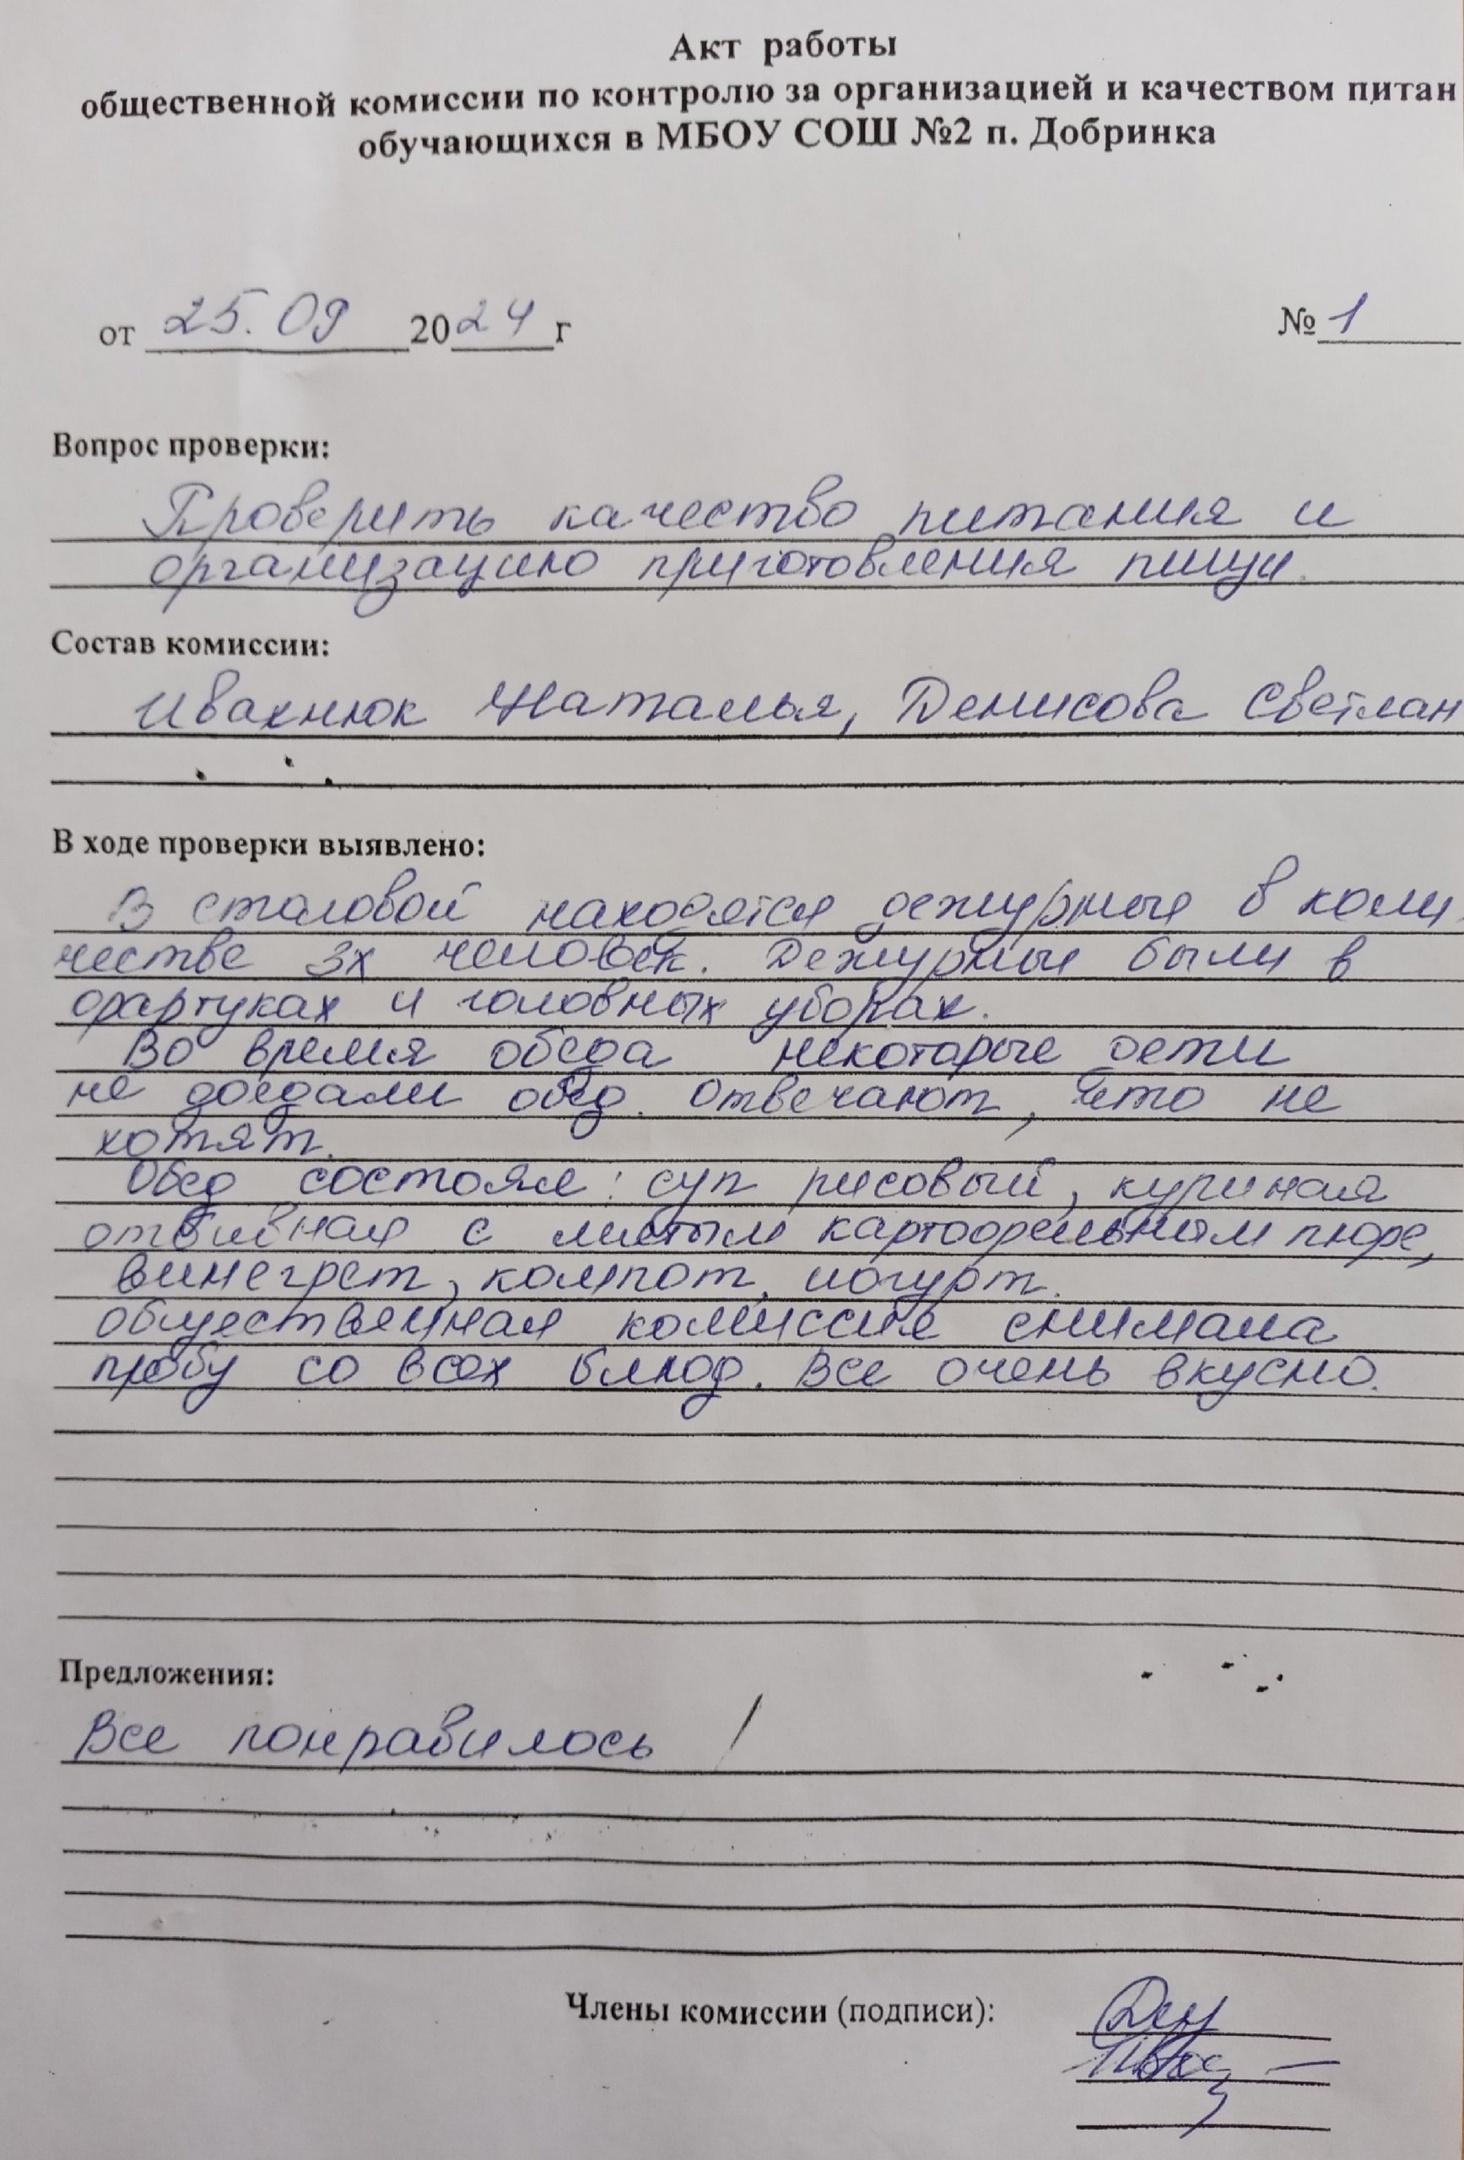 Акт работы
общественной комиссии по контролю за организацией и качеством питан
обучающихся в МБОУ СОШ №2 п. Добринка
от 25.09 2024 г №1
Вопрос проверки:
Проверить качество питания и
организацию приготовления пищи.
Состав комиссии:
Ивахнюк Наталья, Денисова Светлан
В ходе проверки выявлено:
В столовой находятся дежурные в коли
честве 3х человек. Дежурные были в
фартуках и головных уборах.
Во время обеда некоторые дети
не доедали обед. Отвечают, что не
хотят.
Обед состоял: суп рисовый, куриная
отбивная с митым картофельным пюре,
винегрет, компот, йогурт.
общественная комиссия снимала
пробу со всех блюд. Все очень вкусно.
Предложения:
Все понравилось!
Члены комиссии (подписи):